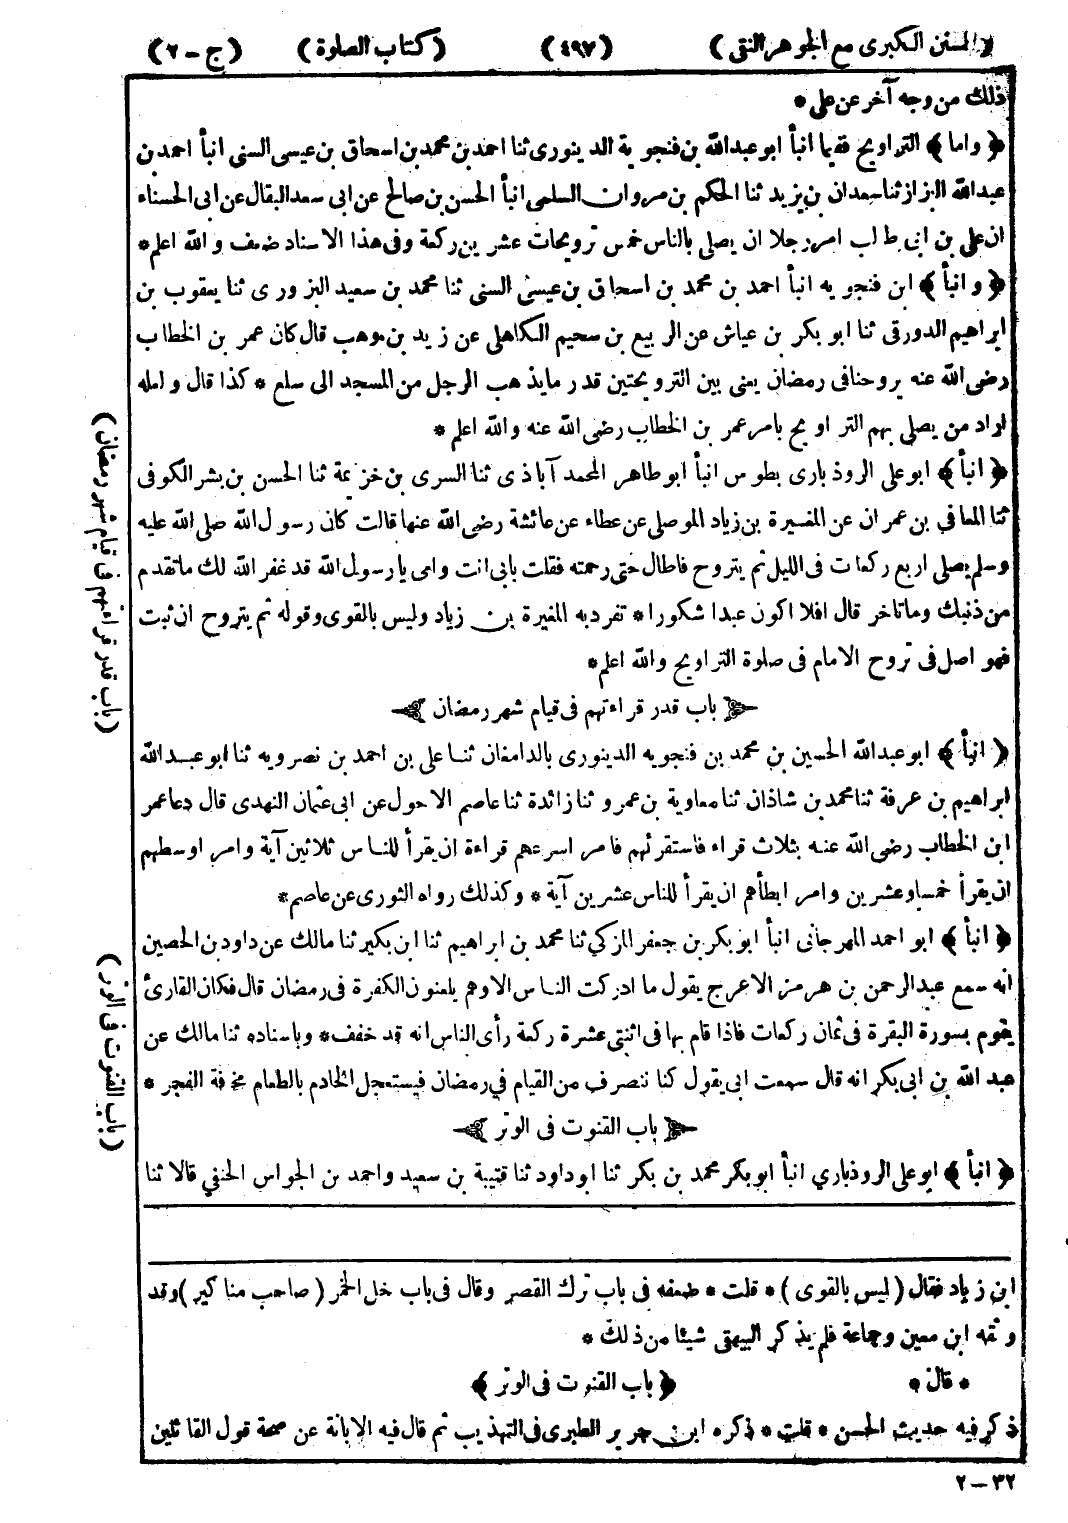 (السنن الكبرى مع الجوهر النقى) (٤٩٧) (كتاب الصلوة) (ج - ٢)
ذلك من وجه آخر عن على *
﴿ واما ﴾ التراويح فقيما انبأ ابو عبد الله بن فنجوية الدينورى ثنا احمد بن محمد بن اسحاق بن عيسى السنى انبأ احمد بن
عبد الله البزاز ثنا سعدان بن يزيد ثنا الحكم بن مروان السلمى انبأ الحسن بن صالح عن ابى سعد البقال عن ابى الحسناء
ان على بن ابى طالب امر رجلا ان يصلى بالناس خمس ترويحات عشرين ركعة وفى هذا الاسناد ضعف والله اعلم *
﴿ وانبأ ﴾ ابن فنجويه انبأ احمد بن محمد بن اسحاق بن عيسى السنى ثنا محمد بن سعيد البزورى ثنا يعقوب بن
ابراهيم الدورقى ثنا ابو بكر بن عياش عن الربيع بن سحيم الكاهلى عن زيد بن وهب قال كان عمر بن الخطاب
رضى الله عنه يروحنا فى رمضان يعنى بين الترويحتين قدر ما يذهب الرجل من المسجد الى سلع * كذا قال ولعله
اراد من يصلى بهم التراويح بامر عمر بن الخطاب رضى الله عنه والله اعلم *
﴿ انبأ ﴾ ابو على الروذبارى بطوس انبأ ابو طاهر المحمد آباذى ثنا السرى بن خزيمة ثنا الحسن بن بشر الكوفى
ثنا المعافى بن عمران عن المغيرة بن زياد الموصلى عن عطاء عن عائشة رضى الله عنها قالت كان رسول الله صلى الله عليه
وسلم يصلى اربع ركعات فى الليل ثم يتروح فاطال حتى رحمته فقلت بابى انت وامى يا رسول الله قد غفر الله لك ما تقدم
من ذنبك وما تاخر قال افلا اكون عبدا شكورا * تفرد به المغيرة بن زياد وليس بالقوى وقوله ثم يتروح ان ثبت
فهو اصل فى تروح الامام فى صلوة التراويح والله اعلم *
﴿ باب قدر قراءتهم فى قيام شهر رمضان ﴾
﴿ انبأ ﴾ ابو عبد الله الحسين بن محمد بن فنجويه الدينورى بالدامغان ثنا على بن احمد بن نصرويه ثنا ابو عبد الله
ابراهيم بن عرفة ثنا محمد بن شاذان ثنا معاوية بن عمرو ثنا زائدة ثنا عاصم الاحول عن ابى عثمان النهدى قال دعا عمر
ابن الخطاب رضى الله عنه بثلاث قراء فاستقرئهم فامر اسرعهم قراءة ان يقرأ للناس ثلاثين آية وامر اوسطهم
ان يقرأ خمسا وعشرين وامر ابطأهم ان يقرأ للناس عشرين آية * وكذلك رواه الثورى عن عاصم *
﴿ انبأ ﴾ ابو احمد المهرجانى انبأ ابو بكر بن جعفر المزكي ثنا محمد بن ابراهيم ثنا ابن بكير ثنا مالك عن داود بن الحصين
انه سمع عبد الرحمن بن هرمز الاعرج يقول ما ادركت الناس الا وهم يلعنون الكفرة فى رمضان قال فكان القارئ
يقوم بسورة البقرة فى ثمان ركعات فاذا قام بها فى اثنتى عشرة ركعة رأى الناس انه قد خفف * وباسناده ثنا مالك عن
عبد الله بن ابى بكر انه قال سمعت ابى يقول كنا ننصرف من القيام في رمضان فيستعجل الخادم بالطعام مخافة الفجر *
﴿ باب القنوت فى الوتر ﴾
﴿ انبأ ﴾ ابو على الروذباري انبأ ابو بكر محمد بن بكر ثنا ابو داود ثنا قتيبة بن سعيد واحمد بن الجواس الحنفي قالا ثنا
(باب قدر قراءتهم فى قيام شهر رمضان)
(باب القنوت فى الوتر)
ابن زياد فقال (ليس بالقوى) * قلت * ضعفه فى باب ترك القصر وقال فى باب خل الخمر (صاحب مناكير) وقد
وثقه ابن معين وجماعة فلم يذكر البيهقى شيئا من ذلك *
* قال * ﴿ باب القنوت فى الوتر ﴾
ذكر فيه حديث الحسن * قلت * ذكره ابن جرير الطبرى فى التهذيب ثم قال فيه الابانة عن صحة قول القائلين
٣٢ - ٢